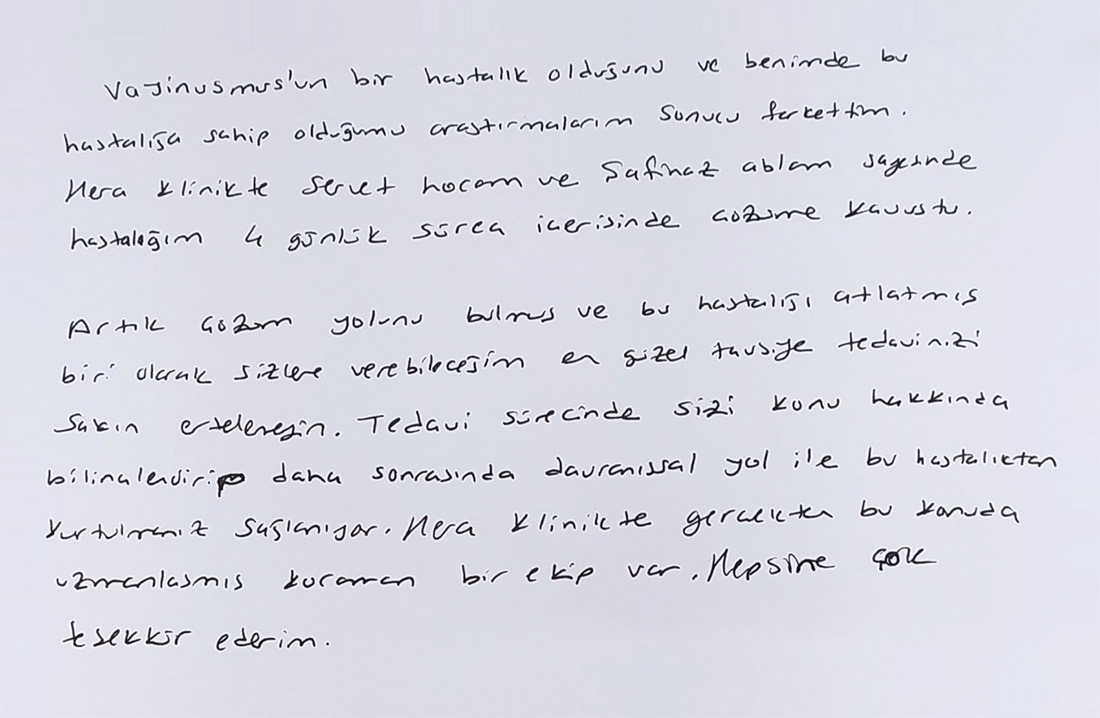 Vajinusmus'un bir hastalık olduğunu ve benimde bu
hastalığa sahip olduğumu arastırmalarım sonucu farkettim.
Hera klinikte Servet hocam ve Safinaz ablam sayesinde
hastalığım 4 günlük süreç icerisinde çözüme kavustu.
Artık çözüm yolunu bulmus ve bu hastalığı atlatmıs
biri olarak sizlere verebileceğim en güzel tavsiye tedavinizi
sakın ertelemeyin. Tedavi sürecinde sizi konu hakkında
bilinçlendirip daha sonrasında davranıssal yol ile bu hastalıktan
kurtulmanız sağlanıyor. Hera klinikte gerçekten bu konuda
uzmanlasmıs kocaman bir ekip var. Hepsine çok
tesekkür ederim.